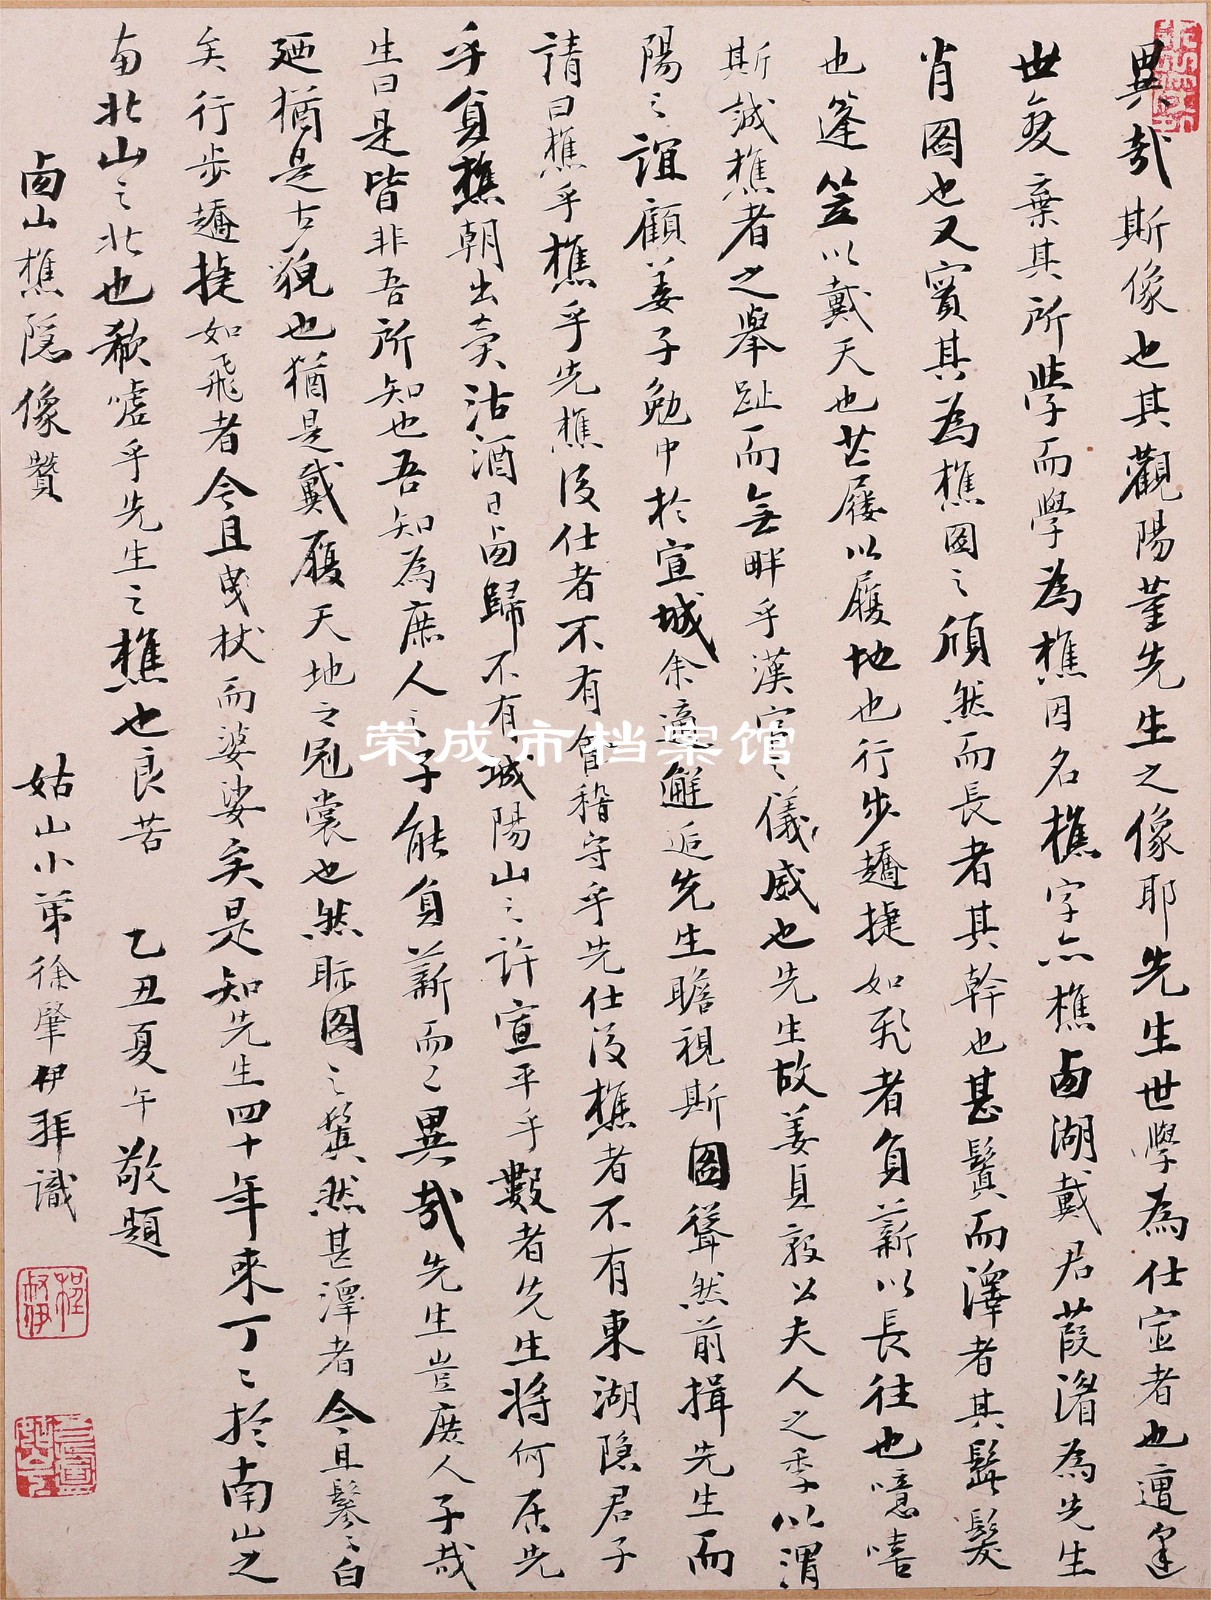 異哉斯像也其觀陽董先生之像耶先生世學為仕宦者也遭逢
世變棄其所學而學為樵因名樵字亦樵鹵湖戴君葭湄為先生
肖圖也又寔其為樵圖之頎然而長者其幹也甚鬒而澤者其髭髮
也篷笠以戴天也芒屨以履地也行步趫捷如飛者負薪以長往也噫嘻
斯誠樵者之舉趾而無畔乎漢官之儀威也先生故姜貞毅公夫人之季以渭
陽之誼顧姜子勉中於宣城余適邂逅先生瞻視斯圖聳然前揖先生而
請曰樵乎樵乎先樵後仕者不有會稽守乎先仕後樵者不有東湖隐君子
乎負樵朝出賣沽酒日鹵歸不有城陽山之許宣平乎數者先生將何居先
生曰是皆非吾所知也吾知為庶人之子能負薪而已異哉先生豈庶人子哉
廼猶是古貌也猶是戴履天地之冠裳也然眎圖之鬒然甚澤者今且鬖鬖白
矣行步趫捷如飛者今且曳杖而婆娑矣是知先生四十年來丁丁於南山之
南北山之北也欷噓乎先生之樵也良苦 乙丑夏午敬題
鹵山樵隐像贊 姑山小弟徐肇伊拜識
荣成市档案馆